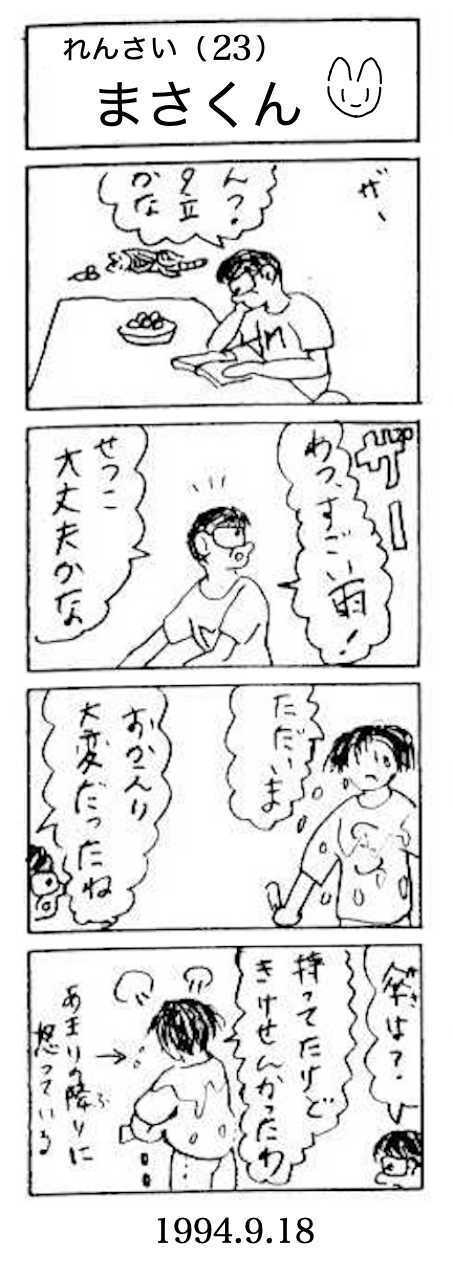 れんさい（23）
まさくん
ザー
ん？
夕立
かな
ザー
わっ、すごい雨！
せつこ
大丈夫かな
ただいま
おかえり
大変だったね
傘は？
持ってたけど
きけせんかったわ
あまりの降りに
怒っている
1994.9.18